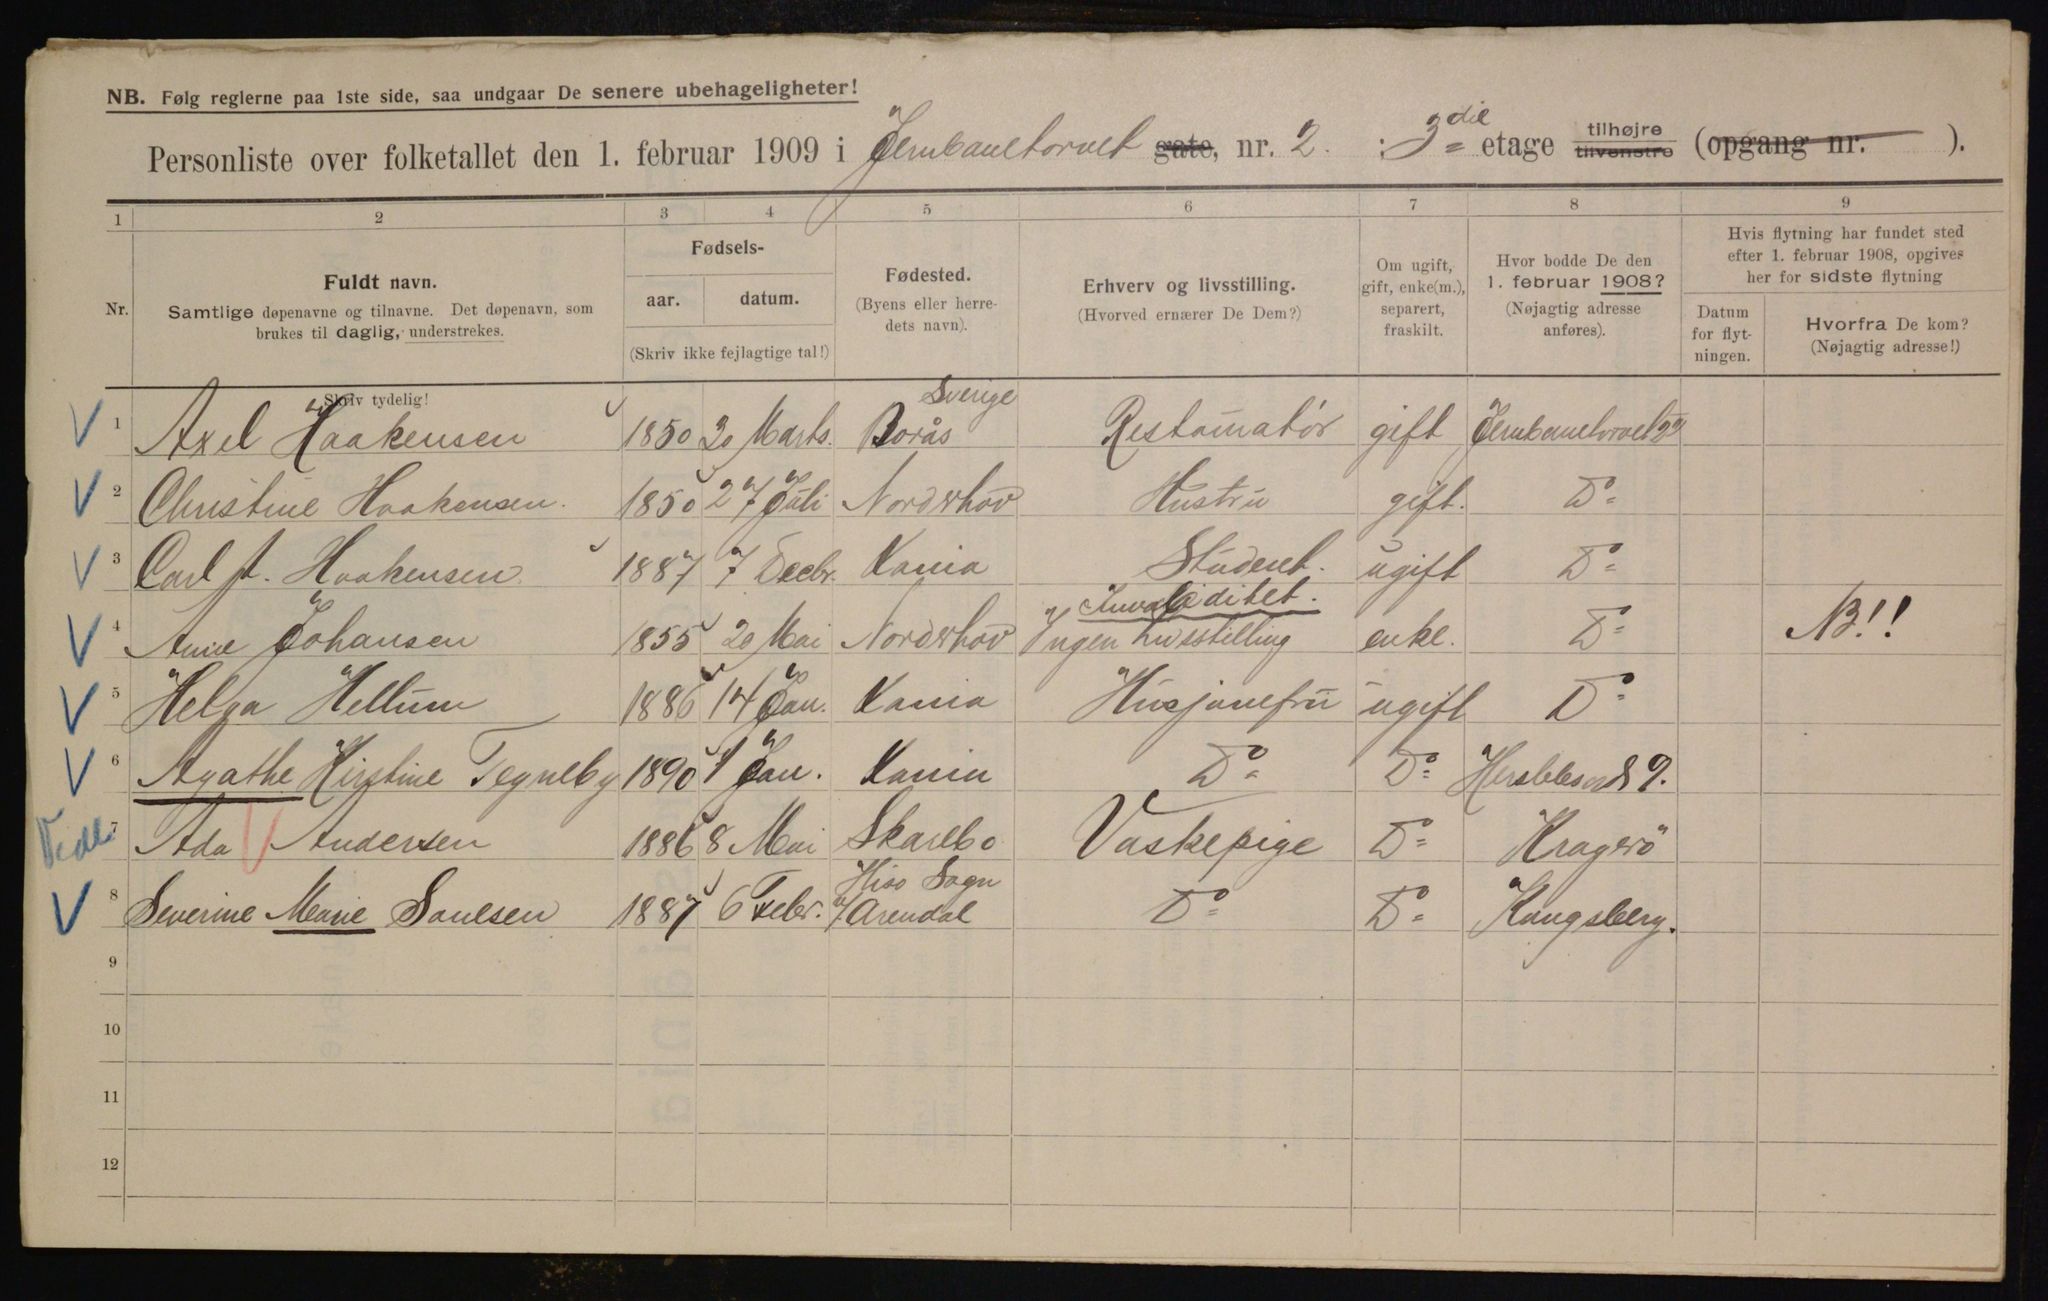 NB. Følg reglerne paa 1ste side, saa undgaar De senere ubehageligheter!
Personliste over folketallet den 1. februar 1909 i Jernbanetorvet gate, nr. 2. : 3die etage tilhøjre tilvenstre (opgang nr. ).
1 2 3 4 5 6 7 8 9
Nr.
Fuldt navn.
Samtlige døpenavne og tilnavne. Det døpenavn, som
brukes til daglig, understrekes.
Skriv tydelig!
Fødsels-
aar. datum.
(Skriv ikke fejlagtige tal!)
Fødested.
(Byens eller herre-
dets navn).
Erhverv og livsstilling.
(Hvorved ernærer De Dem?)
Om ugift,
gift, enke(m.),
separert,
fraskilt.
Hvor bodde De den
1. februar 1908?
(Nøjagtig adresse
anføres).
Hvis flytning har fundet sted
efter 1. februar 1908, opgives
her for sidste flytning
Datum
for flyt-
ningen.
Hvorfra De kom?
(Nøjagtig adresse!)
1 Axel Haakensen 1850 20 Marts. Borås Sverige Restauratør gift Jernbanetorvet 2
2 Christine Haakensen. 1850 27 Juli Norderhov Hustru gift. Do
3 Carl A. Haakensen 1887 7 Decbr. Kania Student. ugift Do
4 Anne Johansen 1855 20 Mai Norderhov Invaliditet. Ingen Livsstilling enke. Do NB!!
5 Helga Hellum 1886 14 Jan. Kania Husjomfru ugift Do
6 Agathe Kirstine Tegneby 1890 1 Jan. Kania Do Do 9.
7 Ada Andersen 1886 8 Mai Skarebo Vaskepige Do Kragerö
8 Severine Marie Saulesen 1887 6 Febr. Hisø Sogn Arendal Do Do Kongsberg.
9
10
11
12